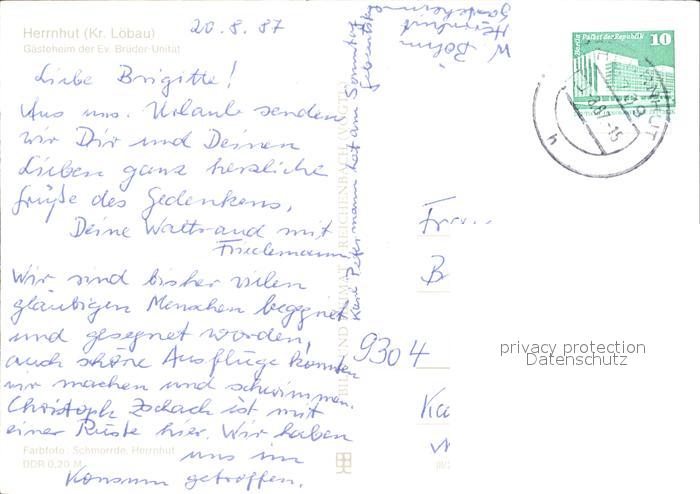 Herrnhut (Kr. Löbau)
Gästeheim der Ev. Brüder-Unität
20.8.87
Liebe Brigitte!
Aus uns. Urlaub senden
wir Dir und Deinen
Lieben ganz herzliche
Grüße des Gedenkens,
Deine Waltraud mit
Friedemann.
Wir sind bisher vielen
gläubigen Menschen begegnet
und gesegnet worden,
auch schöne Ausflüge konnten
wir machen und schwimmen.
Christoph Zschach ist mit
einer Rüste hier. Wir haben
uns im
Konsum getroffen.
Farbfoto: Schmorrde, Herrnhut
DDR 0,20 M
Karl Petermann hat am Sonntag
Geburtstag
BILD UND HEIMAT REICHENBACH (VOGTL)
W. Böhm
Herrnhut
Gästeheim
Berlin Palast der Republik
10
HERRNHUT
8.87-15
h
Frau
B
9304
privacy protection
Datenschutz